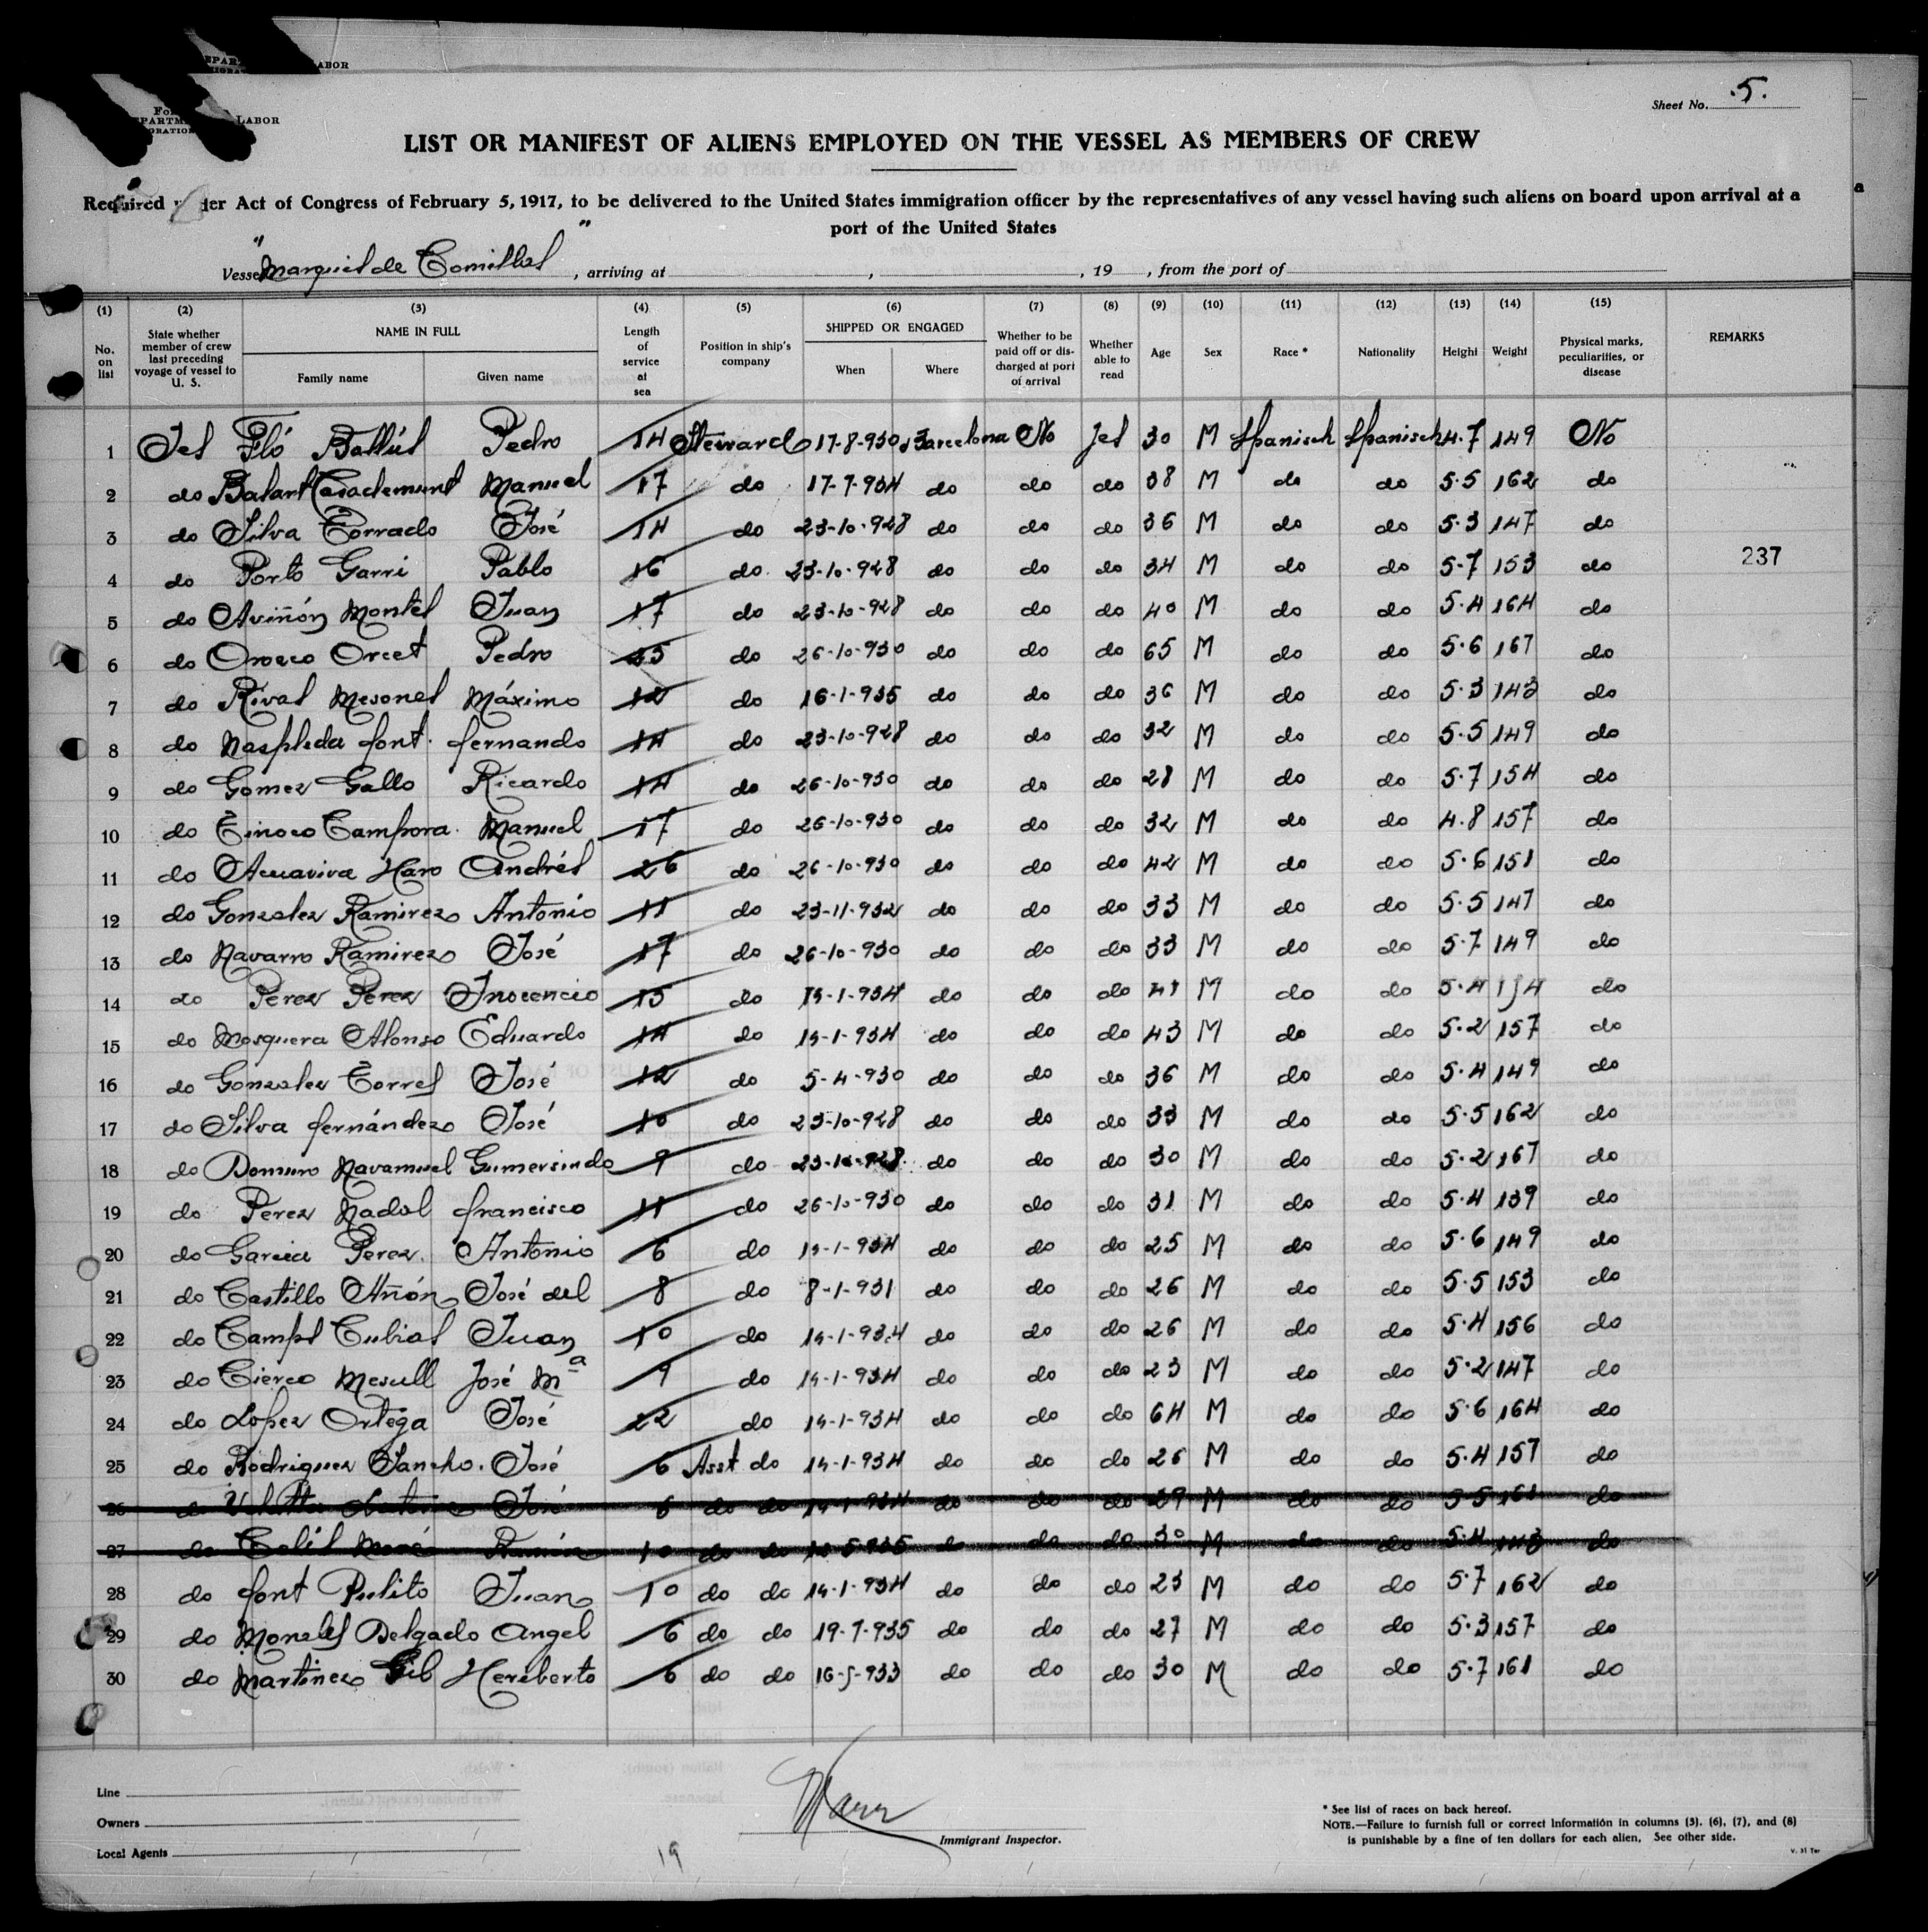 LABOR
LABOR
Sheet No. .5.
LIST OR MANIFEST OF ALIENS EMPLOYED ON THE VESSEL AS MEMBERS OF CREW
Required under Act of Congress of February 5, 1917, to be delivered to the United States immigration officer by the representatives of any vessel having such aliens on board upon arrival at a
port of the United States
Vessel "Marqués de Comillas", arriving at , , 19 , from the port of
(1) (2) (3) (4) (5) (6) (7) (8) (9) (10) (11) (12) (13) (14) (15)
No. on list State whether member of crew last preceding voyage of vessel to U. S. NAME IN FULL Family name Given name Length of service at sea Position in ship's company SHIPPED OR ENGAGED When Where Whether to be paid off or discharged at port of arrival Whether able to read Age Sex Race * Nationality Height Weight Physical marks, peculiarities, or disease REMARKS
1 Yes Fló Ballús Pedro 14 Steward 17-8-930 Barcelona No Yes 30 M Spanisch Spanisch 4.7 149 No
2 do Balart Casademunt Manuel 17 do 17-7-934 do do do 38 M do do 5.5 162 do
3 do Silva Torrado José 14 do 23-10-928 do do do 36 M do do 5.3 147 do
4 do Porto Garri Pablo 16 do 23-10-928 do do do 34 M do do 5.7 153 do 237
5 do Aviñón Montes Juan 17 do 23-10-928 do do do 40 M do do 5.4 164 do
6 do Orozco Orcet Pedro 45 do 26-10-930 do do do 65 M do do 5.6 167 do
7 do Rivas Mesones Máximo 12 do 16-1-935 do do do 36 M do do 5.3 143 do
8 do Naspleda font fernando 14 do 23-10-928 do do do 32 M do do 5.5 149 do
9 do Gomez Gallo Ricardo 14 do 26-10-930 do do do 28 M do do 5.7 154 do
10 do Tinoco Campora Manuel 17 do 26-10-930 do do do 32 M do do 4.8 157 do
11 do Acuaviva Haro Andrés 26 do 26-10-930 do do do 42 M do do 5.6 151 do
12 do Gonzalez Ramirez Antonio 11 do 23-11-932 do do do 33 M do do 5.5 147 do
13 do Navarro Ramirez José 17 do 26-10-930 do do do 33 M do do 5.7 149 do
14 do Perez Perez Inocencio 15 do 14-1-934 do do do 41 M do do 5.4 154 do
15 do Mosquera Alonso Eduardo 14 do 14-1-934 do do do 43 M do do 5.2 157 do
16 do Gonzalez Torres José 12 do 5-4-930 do do do 36 M do do 5.4 149 do
17 do Silva fernández José 10 do 23-10-928 do do do 33 M do do 5.5 162 do
18 do Domuro Navamuel Gumersindo 9 do 23-10-928 do do do 30 M do do 5.2 167 do
19 do Perez Nadal francisco 11 do 26-10-930 do do do 31 M do do 5.4 139 do
20 do Garcia Perez Antonio 6 do 14-1-934 do do do 25 M do do 5.6 149 do
21 do Castillo Añón José del 8 do 8-1-931 do do do 26 M do do 5.5 153 do
22 do Camps Cubias Juan 10 do 14-1-934 do do do 26 M do do 5.4 156 do
23 do Cierco Mesull José Mª 9 do 14-1-934 do do do 23 M do do 5.2 147 do
24 do Lopez Ortega José 22 do 14-1-934 do do do 64 M do do 5.6 164 do
25 do Rodriguez Sancho José 6 Asst do 14-1-934 do do do 26 M do do 5.4 157 do
26 do José 6 do do 14-1-934 do do do 29 M do do 5.5 161 do
27 do Ramón 10 do do do do do 30 M do do 5.4 do
28 do font Pulito Juan 10 do do 14-1-934 do do do 23 M do do 5.7 162 do
29 do Delgado Angel 6 do do 19-7-935 do do do 27 M do do 5.3 157 do
30 do Martinez Gil Heriberto 6 do do 16-5-933 do do do 30 M do do 5.7 161 do
Line
Owners
Local Agents
19
Immigrant Inspector.
* See list of races on back hereof.
NOTE.—Failure to furnish full or correct information in columns (3), (6), (7), and (8)
is punishable by a fine of ten dollars for each alien. See other side.